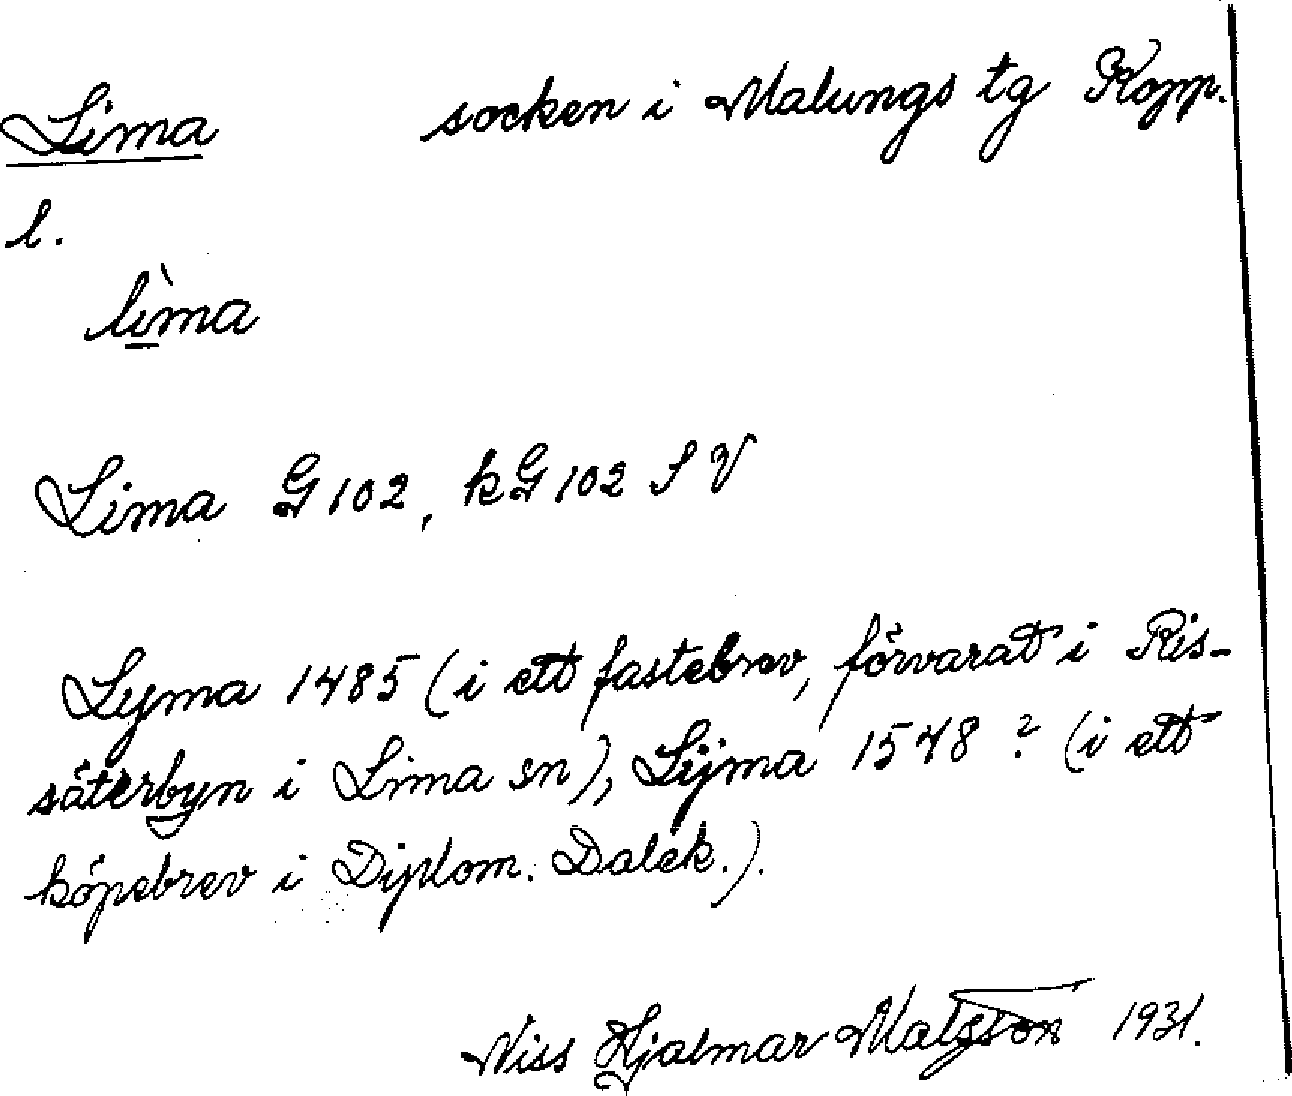 Lima socken i Malungs tg Kopp.
l.
lìma
Lima G 102, kG 102 S V
Lyma 1485 (i ett fastebrev, förvarat i Ris-
säterbyn i Lima sn), Lijma 1548? (i ett
köpebrev i Diplom. Dalek.).
Niss Hjalmar Matsson 1931.